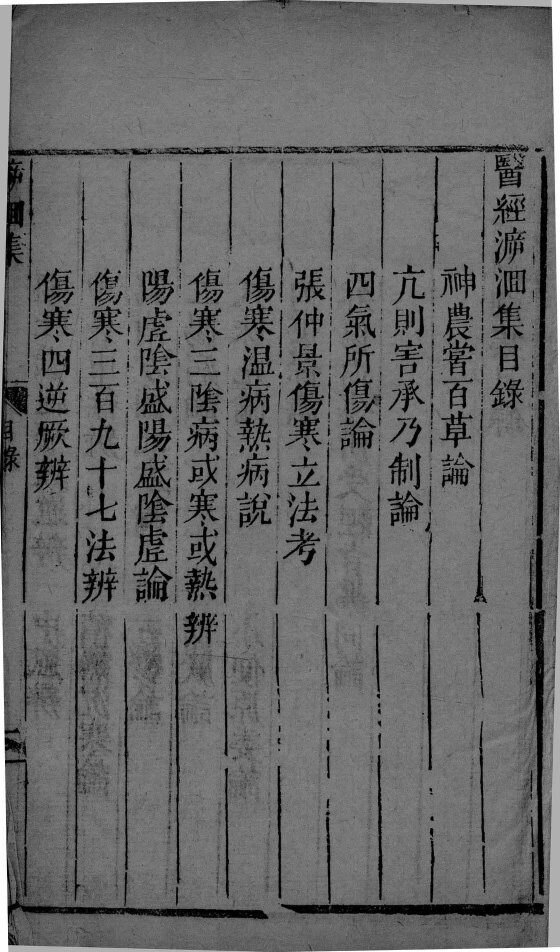 醫經溯洄集目錄
神農嘗百草論
亢則害承乃制論
四氣所傷論
張仲景傷寒立法考
傷寒温病熱病說
傷寒三隂病或寒或熱辨
陽虗隂盛陽盛隂虗論
傷寒三百九十七法辨
傷寒四逆厥辨
泝洄集
目錄
一